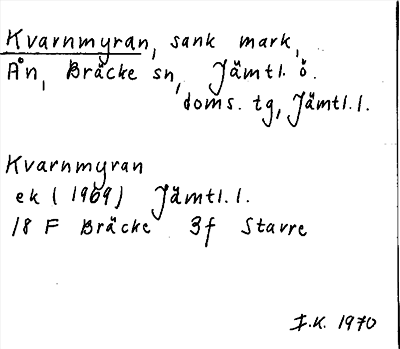 Kvarnmyran, sank mark,
Ån, Bräcke sn, Jämtl. ö.
doms. tg, Jämtl. l.
Kvarnmyran
ek (1969) Jämtl. l.
18 F Bräcke 3f Stavre
I.K. 1970